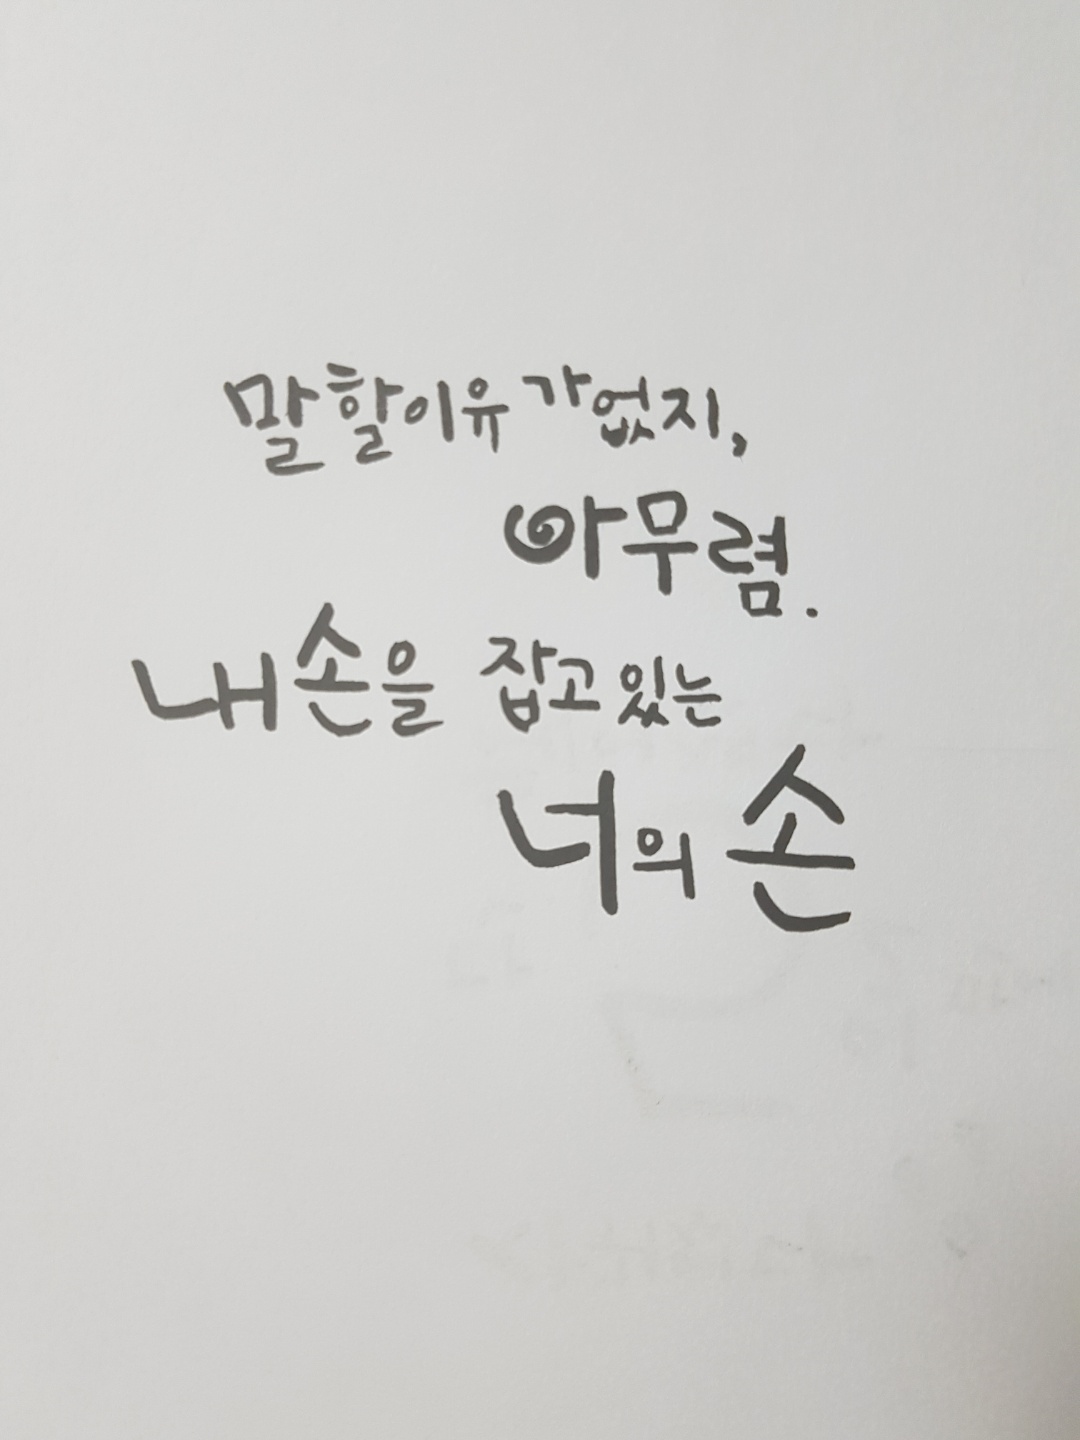 말할이유가없지,
아무렴.
내손을 잡고있는
너의 손